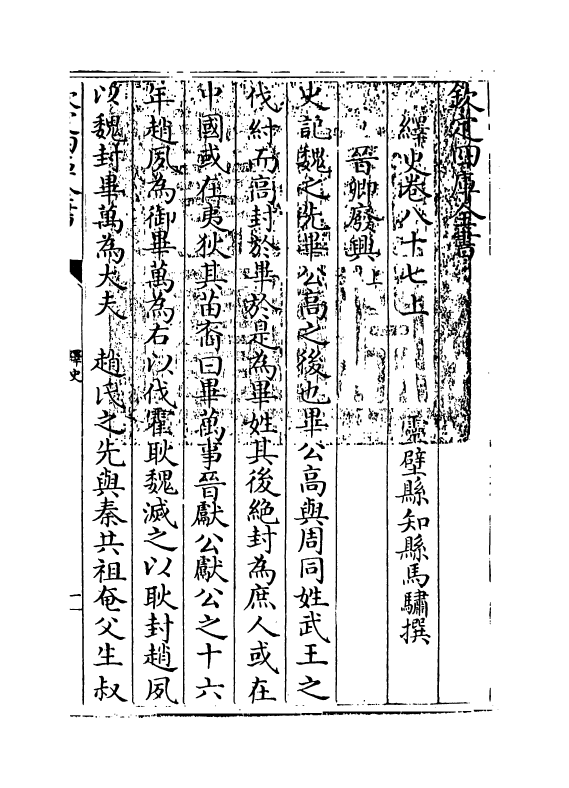 欽定四庫全書
繹史卷八十七上
靈壁縣知縣馬驌撰
晉卿廢興上
史記魏之先畢公高之後也畢公高與周同姓武王之
伐紂而高封於畢於是為畢姓其後絶封為庶人或在
中國或在夷狄其苗裔曰畢萬事晉獻公獻公之十六
年趙夙為御畢萬為右以伐霍耿魏滅之以耿封趙夙
以魏封畢萬為大夫　趙氏之先與秦共祖奄父生叔
欽定四庫全書
繹史
一